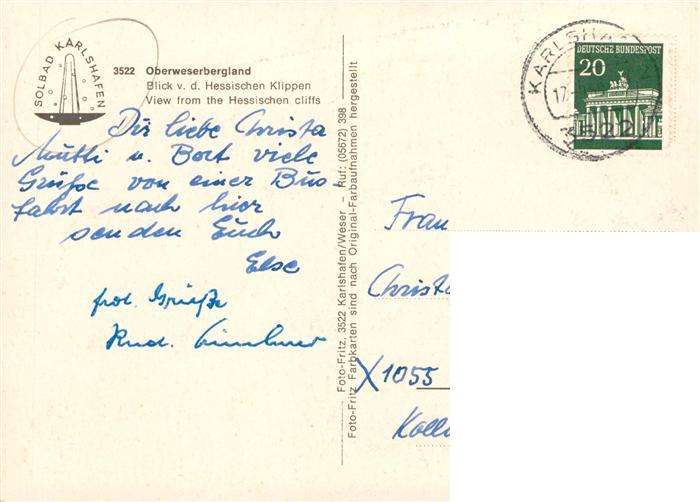 SOLBAD KARLSHAFEN
3522 Oberweserbergland
Blick v. d. Hessischen Klippen
View from the Hessischen cliffs
Dir liebe Christa
Mutti u. Bert viele
Grüße von einer Bus-
fahrt nach hier
senden Euch
Else
frdl. Grüße
Rud.
Foto-Fritz, 3522 Karlshafen/Weser - Ruf: (05672) 398
Foto-Fritz Farbkarten sind nach Original-Farbaufnahmen hergestellt
KARLSHA
17.
3522
DEUTSCHE BUNDESPOST
20
Frau
Christa
X1055